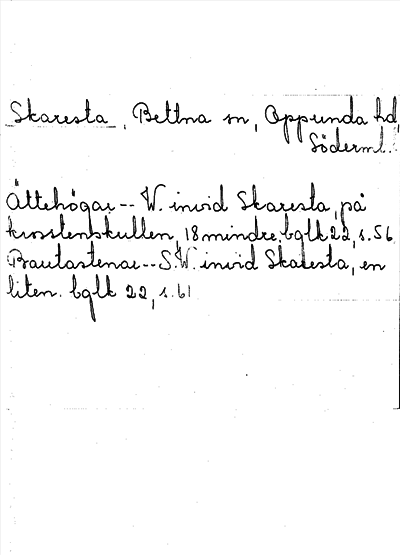 Skaresta, Bettna sn, Oppunda hd,
Söderml.
Ättehögar -- W. invid Skaresta, på
krosstenskullen, 18 mindre. bglk 22, s. 56
Bautastenar -- S.W. invid Skaresta, en
liten. bglk 22, s. 61